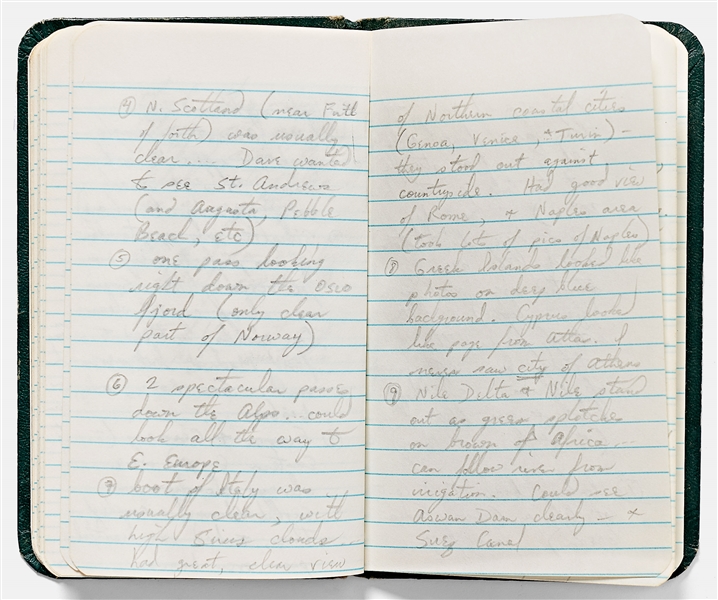 ④ N. Scotland (near Firth
of forth) was usually
clear.... Dave wanted
to see St. Andrews
(and Augusta, Pebble
Beach, etc)
⑤ one pass looking
right down the Oslo
fjord (only clear
part of Norway)
⑥ 2 spectacular passes
down the Alps... could
look all the way to
E. Europe
⑦ boot of Italy was
usually clear, with
high cirrus clouds.
had great, clear view
of Northern coastal cities
(Genoa, Venice, & Turin) –
they stood out against
countryside. Had good view
of Rome, & Naples area.
(took lots of pics of Naples)
⑧ Greek Islands looked like
photos on deep blue
background. Cyprus looked
like page from atlas. I
never saw city of Athens
⑨ Nile Delta & Nile stand
out as green splotches
on brown of Africa...
can follow river from
irrigation. Could see
Aswan Dam clearly – &
Suez Canal